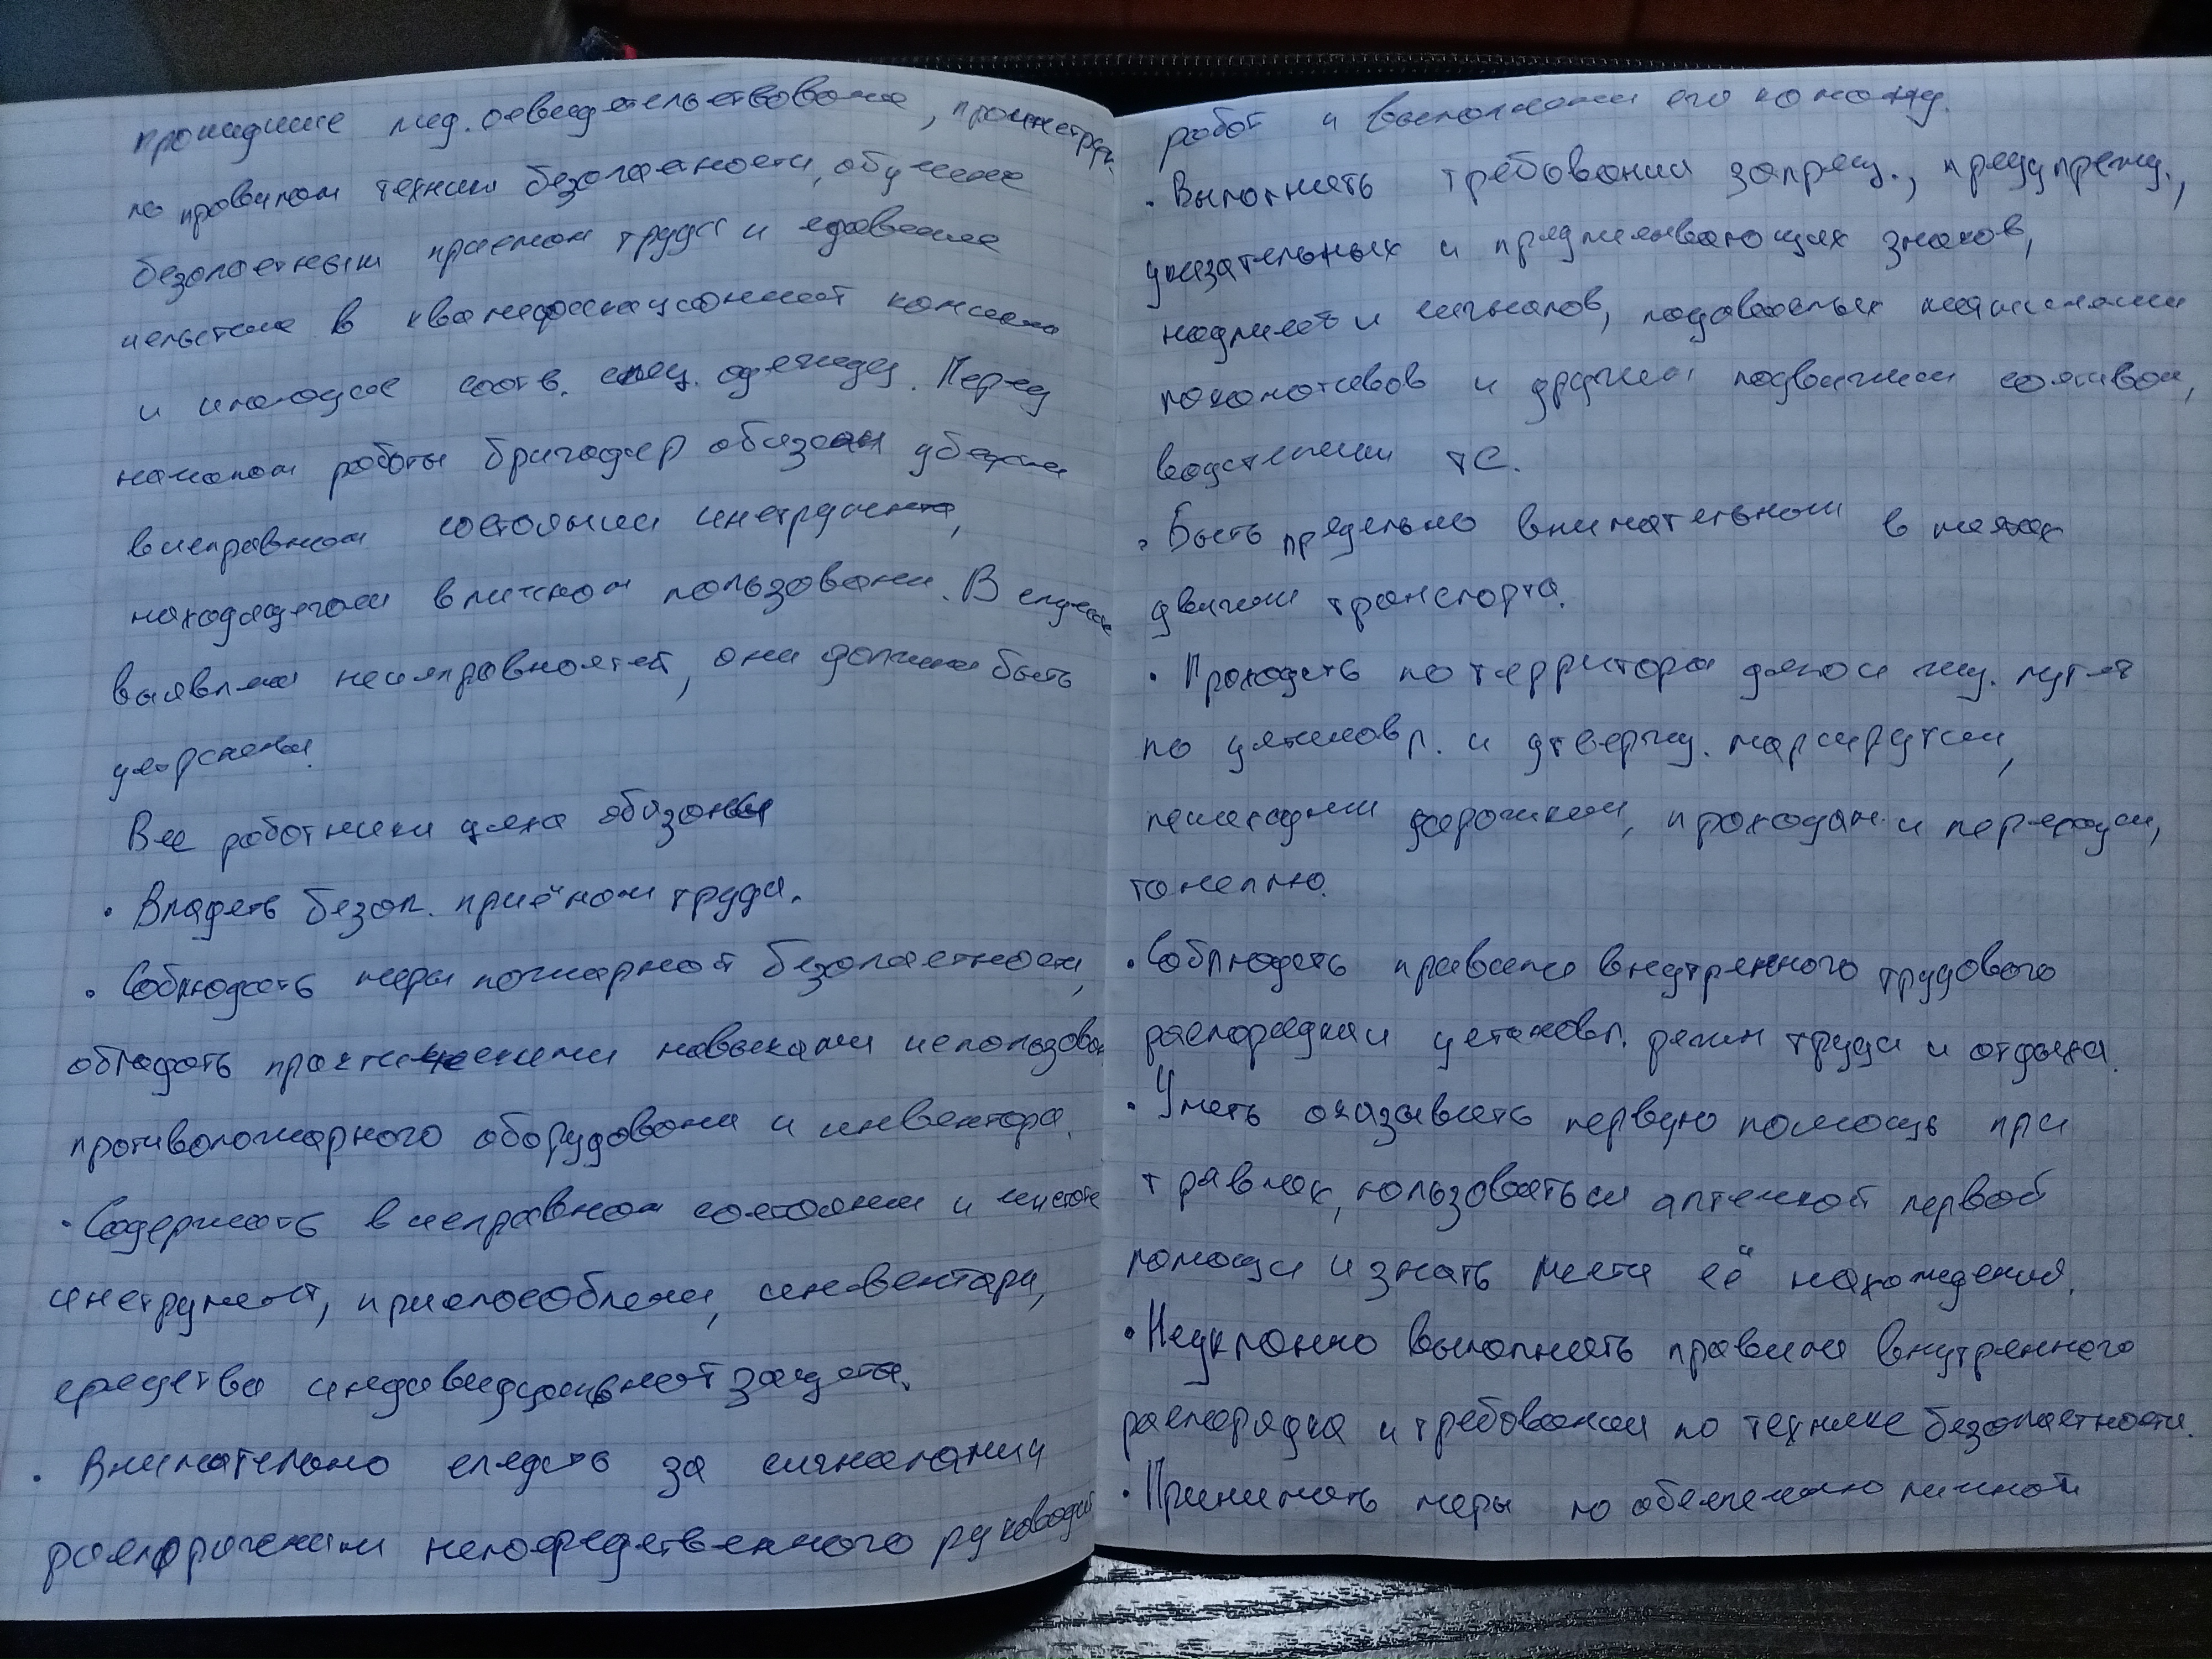 прошедшие мед. освидетельствование, проинструк.
по правилам техники безопасности, обучение
безопасным приемам труда и сдавшие
испытание в квалификационной комиссии
и имеющие соотв. спец. одежду. Перед
началом работы бригадир обязан убедит
в исправном состоянии инструмента,
находящегося в личном пользовании. В случае
выявлен неисправностей, они должны быть
устранены.
Все работники цеха обязаны
• Владеть безоп. приёмом труда.
• Соблюдать меры пожарной безопасности,
обладать практическими навыками использован
противопожарного оборудования и инвентаря.
• Содержать в исправном состоянии и чистоте
инструмент, приспособлени, инвентари,
средства индивидуальной защиты.
• Внимательно следить за сигналами и
распоряжениям непосредственного руководит
работ и выполнении его команд.
• Выполнять требования запрещ., предупрежд.,
указательных и предписывающих знаков,
надписей и сигналов, подаваемых машинистами
локомотивов и другим подвижным составом,
водителями ТС.
• Быть предельно внимательном в местах
движени транспорта.
• Проходить по территори депо и ж/д. путей
по установл. и утвержд. маршрутам,
пешеходным дорожкам, проходам и переходам,
тонелю.
• Соблюдать правила внутреннего трудового
распорядка и установл. режим труда и отдыха.
• Уметь оказывать первую помощь при
травмах, пользоваться аптечкой первой
помощи и знать места её нахождения.
• Неуклонно выполнять правила внутреннего
распорядка и требовании по технике безопасности.
• Принимать меры по обеспечению личной